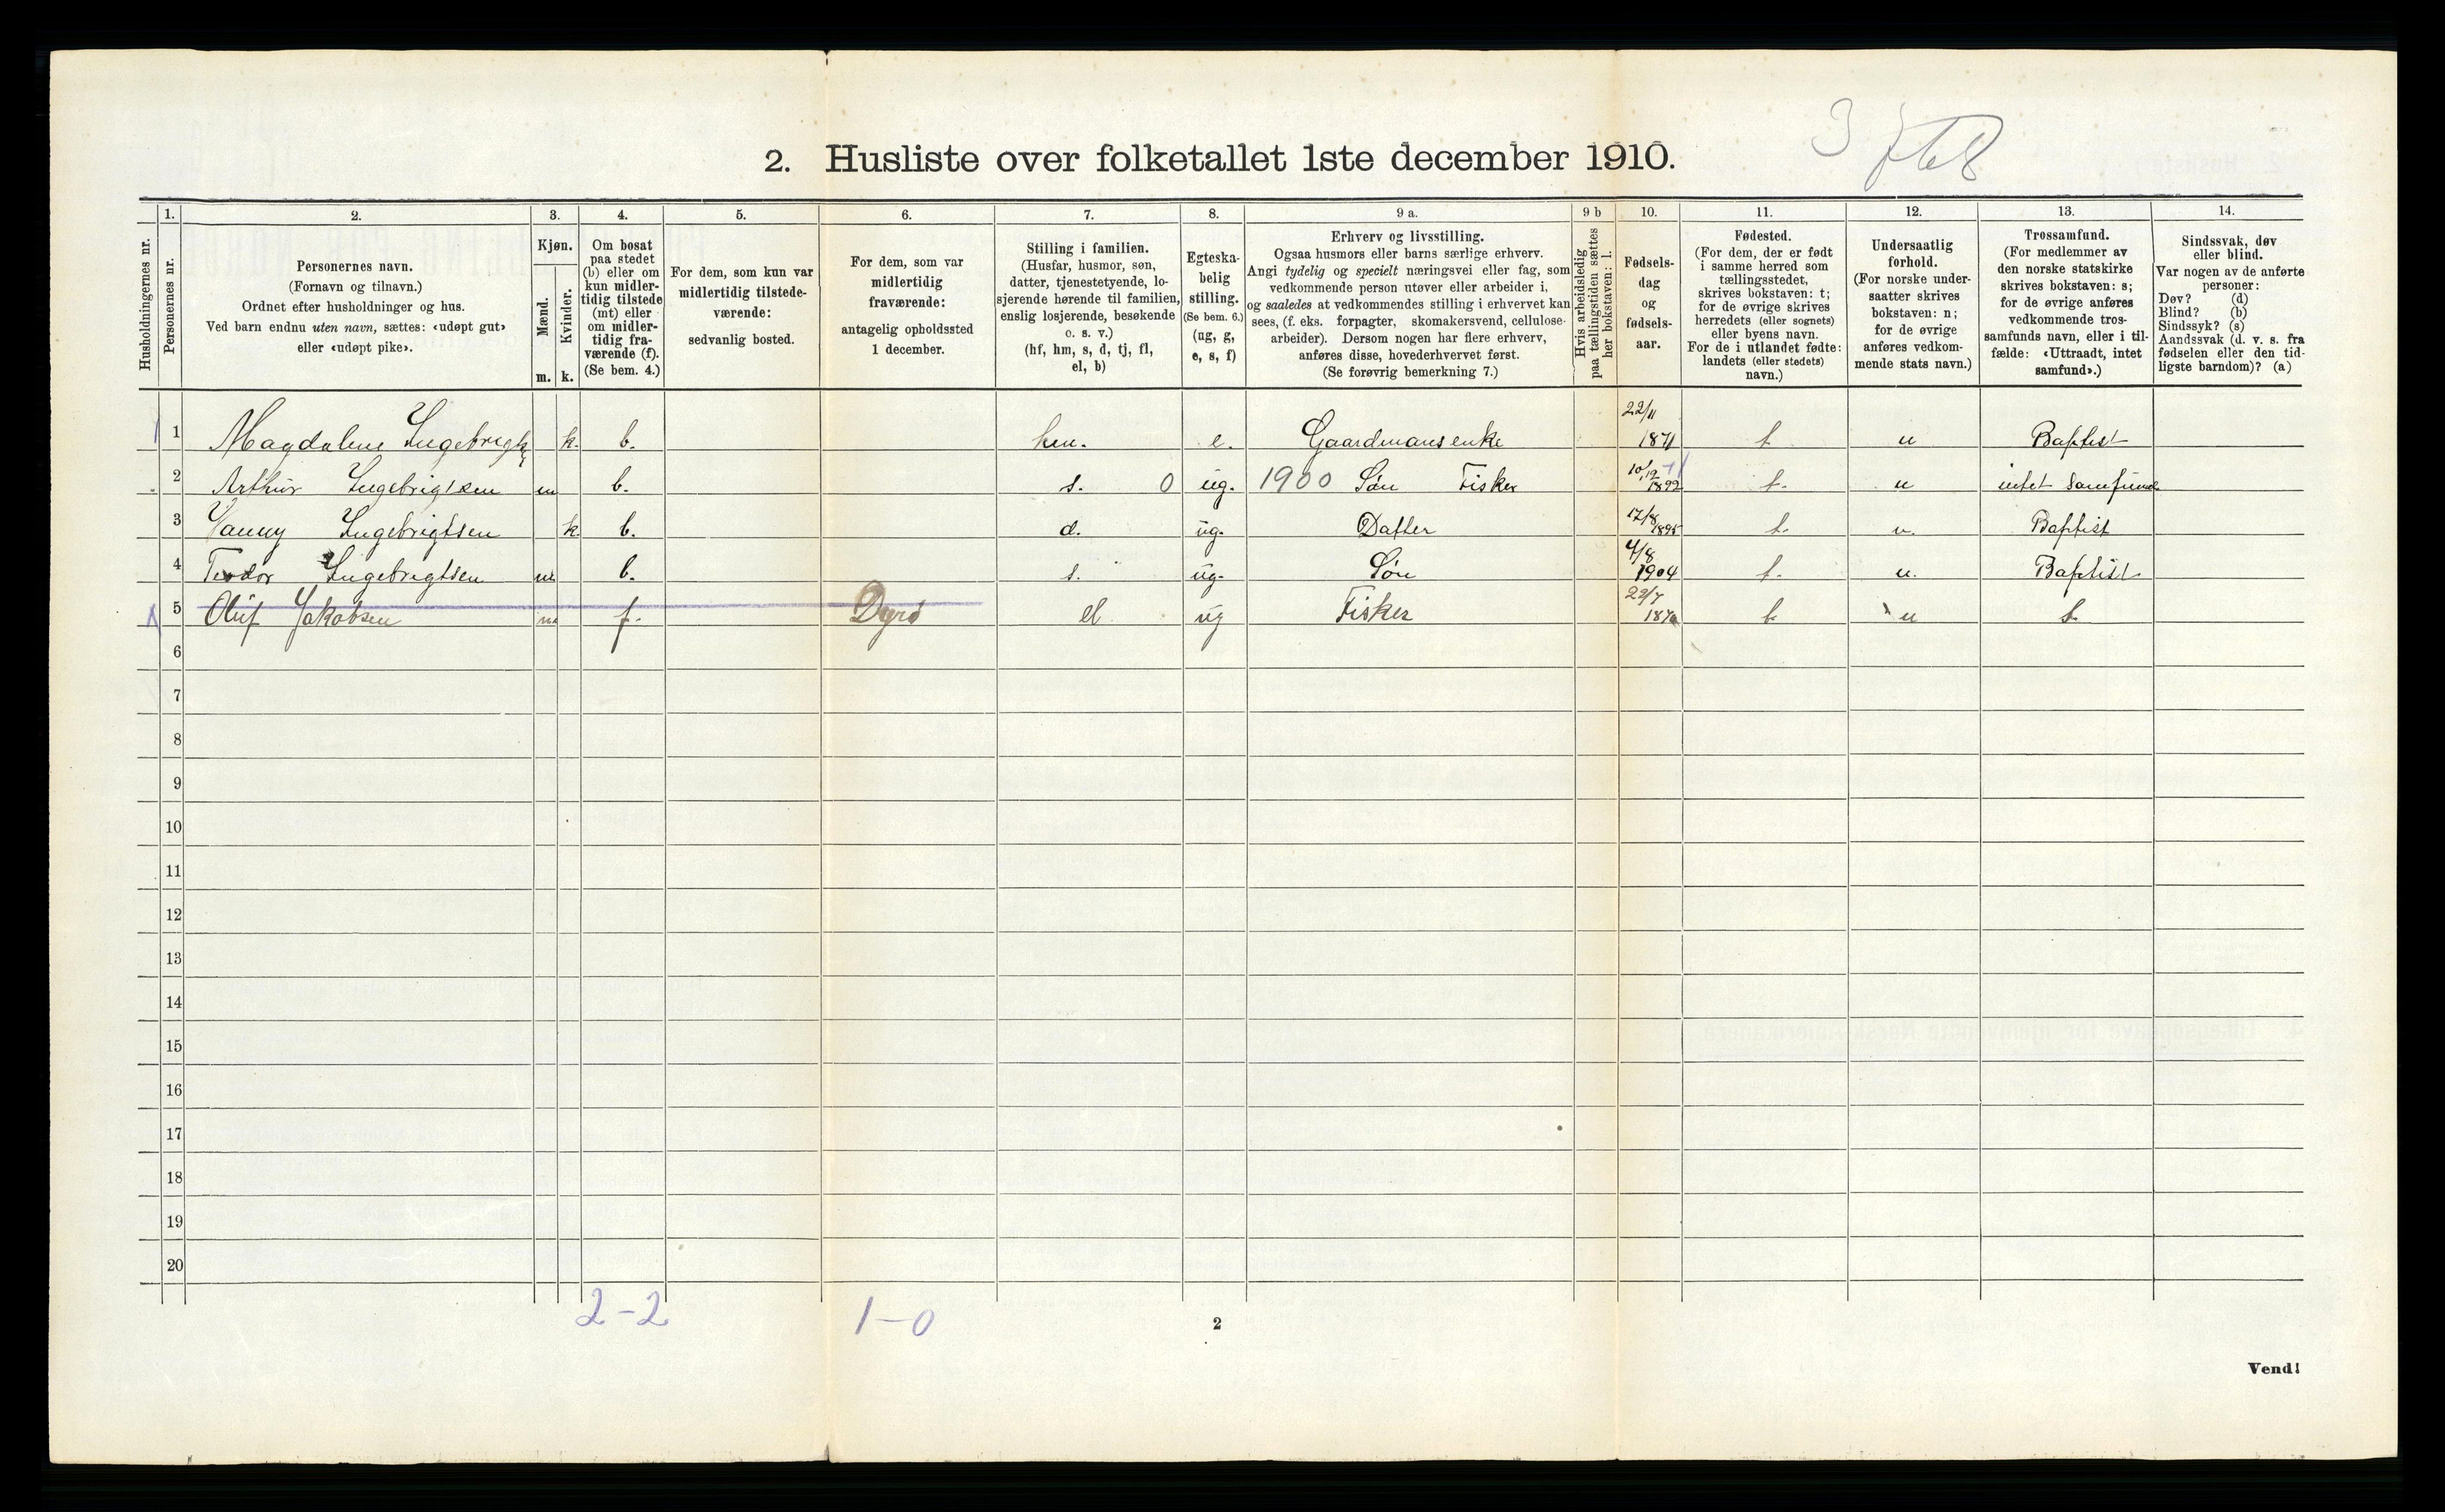 2. Husliste over folketallet 1ste december 1910.
3
Husholdningernes nr.
1.
Personernes nr.
2.
Personernes navn.
(Fornavn og tilnavn.)
Ordnet efter husholdninger og hus.
Ved barn endnu uten navn, sættes: «udøpt gut»
eller «udøpt pike».
3.
Kjøn.
Mænd.
Kvinder.
m. k.
4.
Om bosat
paa stedet
(b) eller om
kun midler-
tidig tilstede
(mt) eller
om midler-
tidig fra-
værende (f).
(Se bem. 4.)
5.
For dem, som kun var
midlertidig tilstede-
værende:
sedvanlig bosted.
6.
For dem, som var
midlertidig
fraværende:
antagelig opholdssted
1 december.
7.
Stilling i familien.
(Husfar, husmor, søn,
datter, tjenestetyende, lo-
sjerende hørende til familien,
enslig losjerende, besøkende
o. s. v.)
(hf, hm, s, d, tj, fl,
el, b)
8.
Egteska-
belig
stilling.
(Se bem. 6.)
(ug, g,
e, s, f)
9 a.
Erhverv og livsstilling.
Ogsaa husmors eller barns særlige erhverv.
Angi tydelig og specielt næringsvei eller fag, som
vedkommende person utøver eller arbeider i,
og saaledes at vedkommendes stilling i erhvervet kan
sees, (f. eks. forpagter, skomakersvend, cellulose-
arbeider). Dersom nogen har flere erhverv,
anføres disse, hovederhvervet først.
(Se forøvrig bemerkning 7.)
9 b
Hvis arbeidsledig
paa tællingstiden sættes
her bokstaven: l.
10.
Fødsels-
dag
og
fødsels-
aar.
11.
Fødested.
(For dem, der er født
i samme herred som
tællingsstedet,
skrives bokstaven: t;
for de øvrige skrives
herredets (eller sognets)
eller byens navn.
For de i utlandet fødte:
landets (eller stedets)
navn.)
12.
Undersaatlig
forhold.
(For norske under-
saatter skrives
bokstaven: n;
for de øvrige
anføres vedkom-
mende stats navn.)
13.
Trossamfund.
(For medlemmer av
den norske statskirke
skrives bokstaven: s;
for de øvrige anføres
vedkommende tros-
samfunds navn, eller i til-
fælde: «Uttraadt, intet
samfund».)
14.
Sindssvak, døv
eller blind.
Var nogen av de anførte
personer:
Døv? (d)
Blind? (b)
Sindssyk? (s)
Aandssvak (d. v. s. fra
fødselen eller den tid-
ligste barndom)? (a)
1 Magdalene k. b. hm. e. Gaardmansenke 22/11 1871 t. n Baptist
2 Arthur Ingebrigtsen m b. s. 0 ug. 1900 Søn Fisker 10/12 1892 t. n intet Samfund
3 Ingebrigtsen k. b. d. ug. Datter 17/8 1895 t. n. Baptist
4 Teodor Ingebrigtsen m. b. s. ug. Søn 4/8 1904 t. n. Baptist
5 Oluf Jakobsen m. f. Dyrø el ug Fisker 22/7 t. n s.
6
7
8
9
10
11
12
13
14
15
16
17
18
19
20
2-2 1-0
2
Vend!